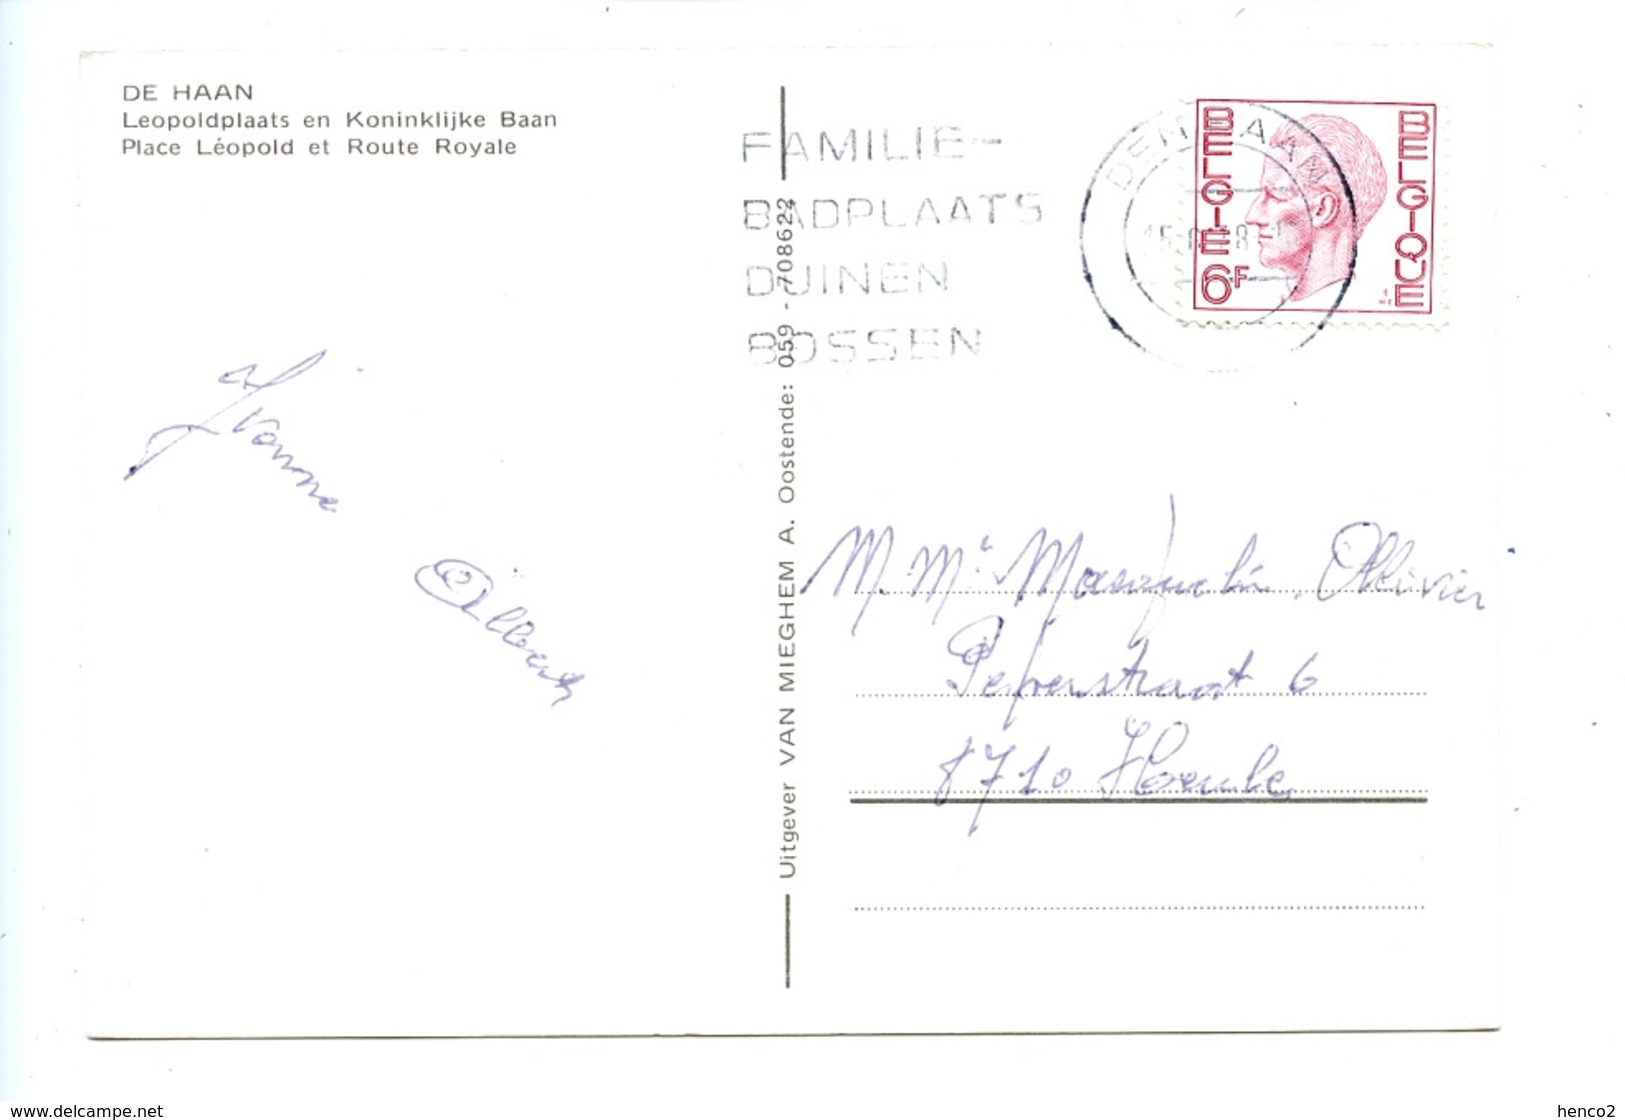 DE HAAN
Leopoldplaats en Koninklijke Baan
Place Léopold et Route Royale
FAMILIE-
BADPLAATS
DUINEN
BOSSEN
DE HAAN
BELGIE
BELGIQUE
6F
Yvonne
Albert
Uitgever VAN MIEGHEM A. Oostende: 059 - 708622
M. Mᵉ Ollivier
Peperstraat 6
8710 Heule
www.delcampe.net
henco2